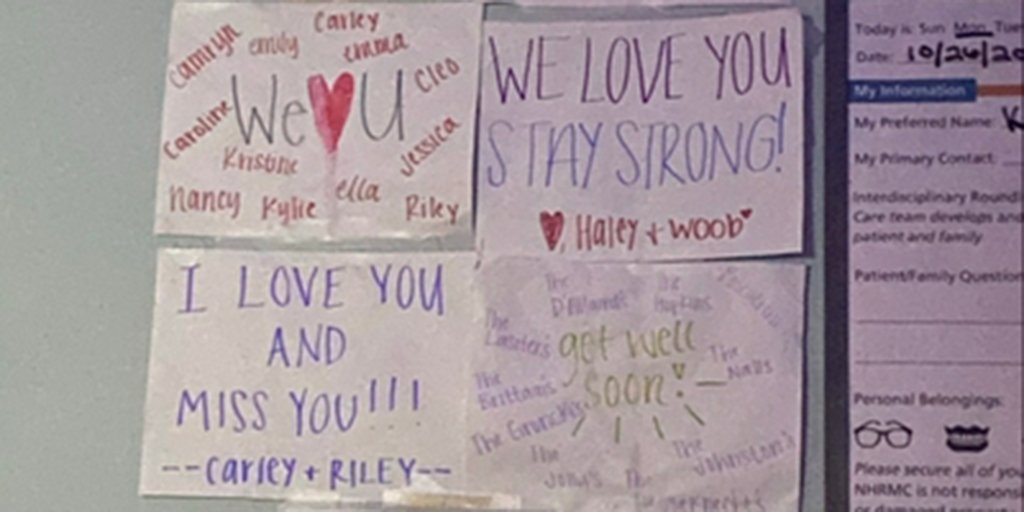 Camryn emily Carley emma Cleo
We ♥ U
Caroline Kristine Jessica
Nancy Kylie ella Riley
WE LOVE YOU
STAY STRONG!
♥, HALEY + WOOB♥
I LOVE YOU
AND
MISS YOU!!!
--Carley + RILEY--
The
The
Hopkins
The
get well
soon!
The
Nalls
The
Brittains
The
The
Johnston's
The
Today is: Sun Mon Tue
Date: 10/26/20
My Information
My Preferred Name: K
My Primary Contact:
Interdisciplinary Round
Care team develops and
patient and family
Patient/Family Question
Personal Belongings:
Please secure all of you
NHRMC is not respons
or damaged